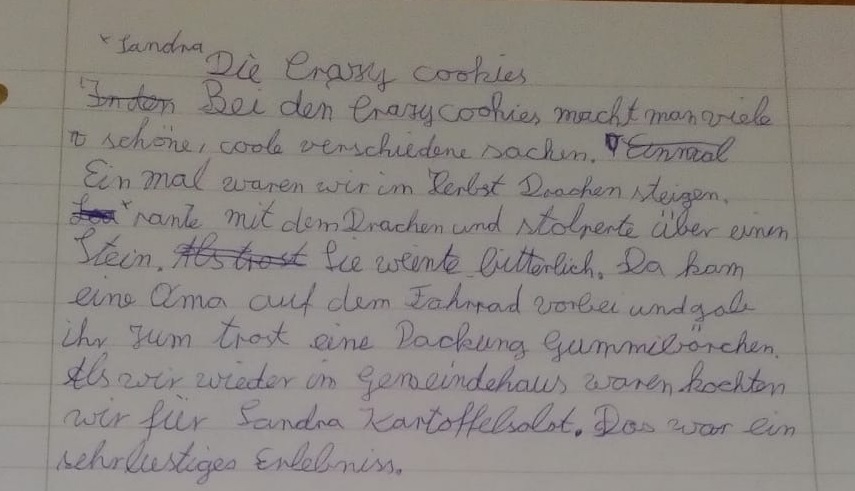 * Sandra
Die Crazy cookies
In den Bei den Crazy cookies macht man viele
schöne, coole verschiedene sachen. Einmal
Ein mal waren wir im Herbst Drachen steigen.
* rante mit dem Drachen und stolperte über einen
Stein. Als trost Sie weinte bitterlich. Da kam
eine Oma auf dem Fahrrad vorbei und gab
ihr zum trost eine Packung Gummibärchen.
Als wir wieder in Gemeindehaus waren kochten
wir für Sandra Kartoffelsalat. Das war ein
sehr lustiges Erlebniss.